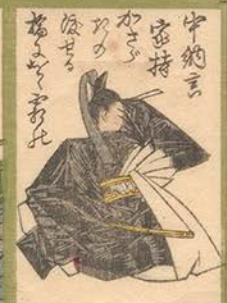 中納言
家持
かささ
きの
渡せる
橋におく霜の